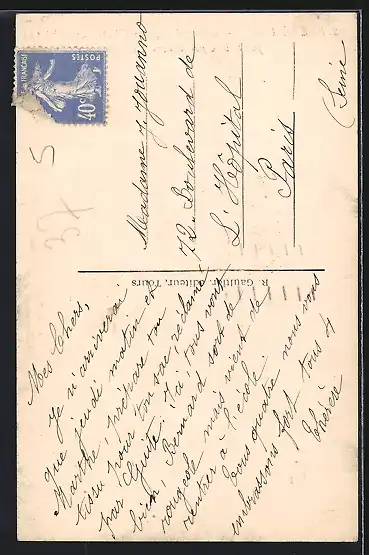 Mes Chers,
Je n'arriverai
que jeudi matin et
Marthe, prépare ton
tissu pour ton sac, réclamé
par Aguite. Ici, tous vont
bien, Bernard sort de
rougeole mais vient de
rentrer à l'école.
Tous quatre nous vous
embrassons fort tous 4
Thérèse
Madame J Jouanno
72 Boulevard de
L'Hôpital
Paris
(Seine
R. Gaultier, éditeur, Tours
POSTES
40c
37
5